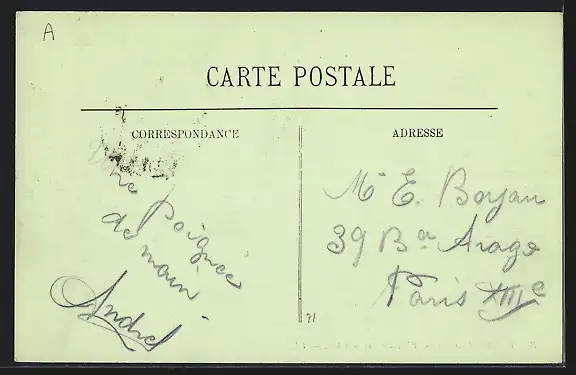 A
CARTE POSTALE
CORRESPONDANCE
ADRESSE
Une
Poignée
de main
André
Mr E. Boyau
39 Bd Arago
Paris XIIIe